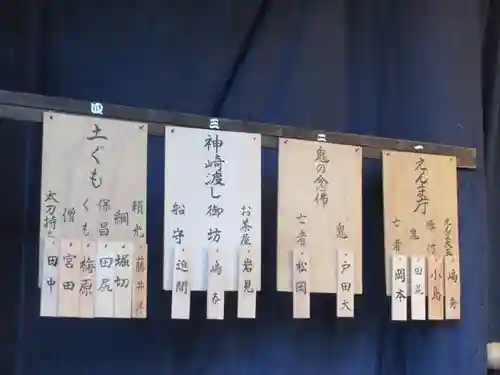 一
えんま庁
えんま王
嶋
帳付
小島
鬼
田
亡者
岡本
二
鬼の念佛
鬼
戸田大
亡者
松岡
三
神崎渡し
お茶屋
岩見
御坊
嶋泰
船守
近間
四
土ぐも
頼光
藤井
綱
堀切
保昌
田尻
くも
梅原
僧
宮田
太刀持ち
田中